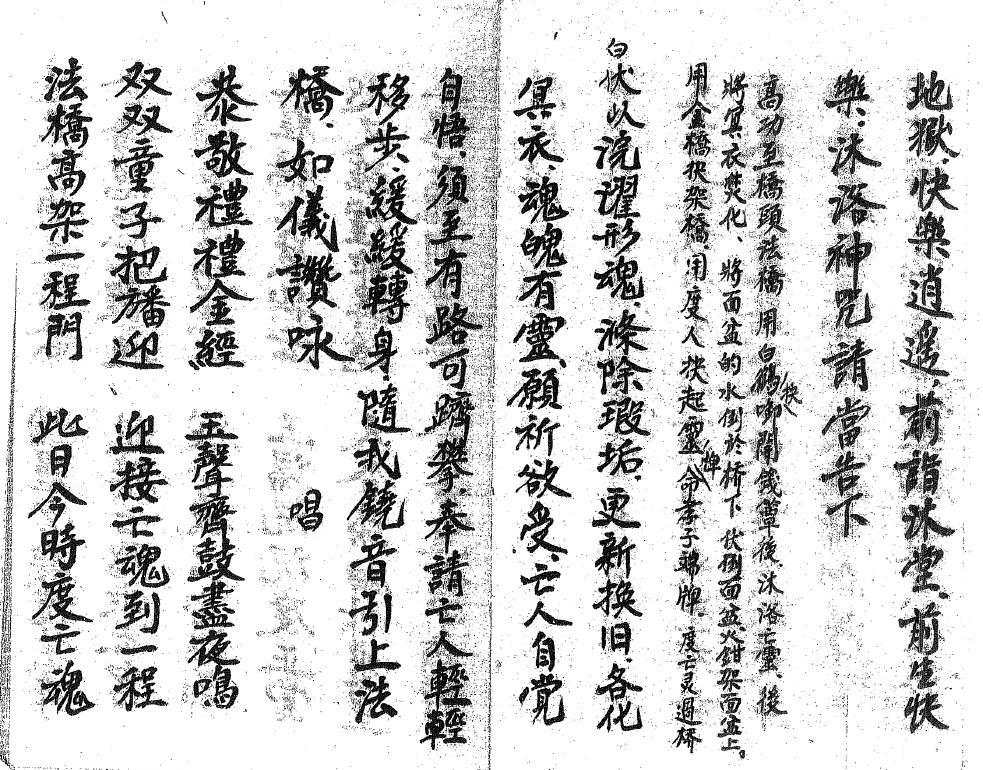 地獄、快樂逍遥、前詣沐堂、前生快
樂、沐浴神咒請當告下
高功至橋頭法橋用白鶴吻開錢葦後、沐浴亡靈、後
將冥衣焚化、將面盆的水倒於桥下伏倒面盆、火鉗架面盆上。
用金橋挟架橋、用度人挟起靈牌令孝子端牌度亡灵過桥
白伏以浣濯形魂、滌除瑕垢、更新換旧、各化
冥衣、魂魄有靈、願祈欲受、亡人自覚
自悟、須至有路可躋攀、奉請亡人輕輕
移步、緩緩轉身、隨我鐃音、引上法
橋、如儀讚咏 唱
恭敬禮禮金經 玉聲齊鼓盡夜鳴
双双童子把旛迎 迎接亡魂到一程
法橋高架一程門 此日今時度亡魂